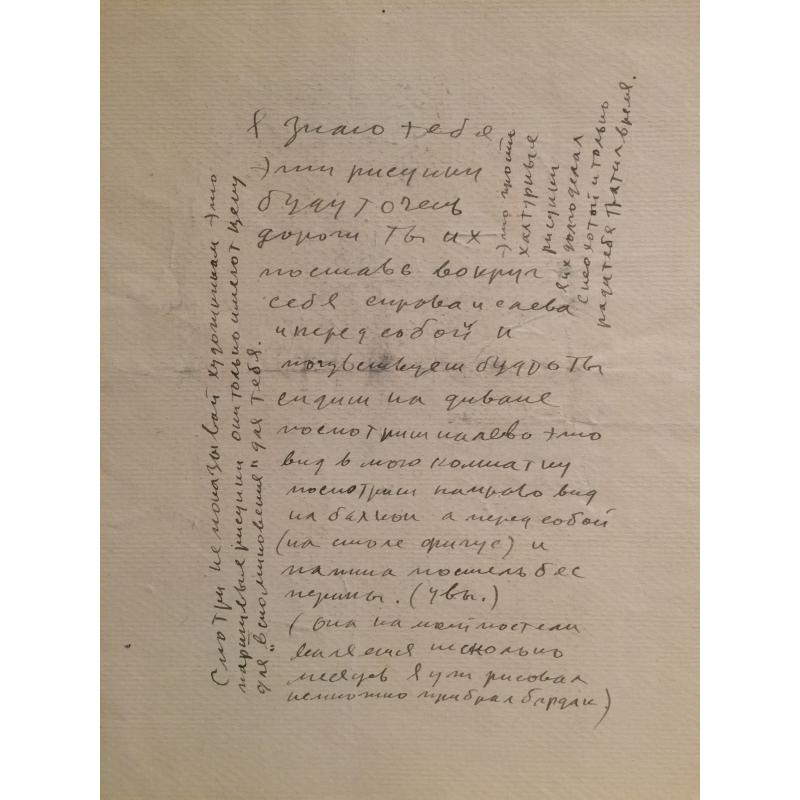 Я знаю тебя
Эти рисунки
будут очень
дороги ты их
поставь вокруг
себя справа и слева
и перед собой и
почувствуеш будто ты
сидиш на диване
посмотриш налево это
вид в мою комнатку
посмотриш направо вид
на балкон а перед собой
(на столе фикус) и
папина постель бес
перины. (увы.)
(она на моей постели
валяется несколько
месяцев Я уж рисовал
немножно прибрал бардак)
это просто
халтурные
рисунки
я их долго делал
с неохотой и только
ради тебя тратил время.
Смотри не показывай художникам это
паршивые рисунки они только имеют цену
для "вспоминовения" для тебя.